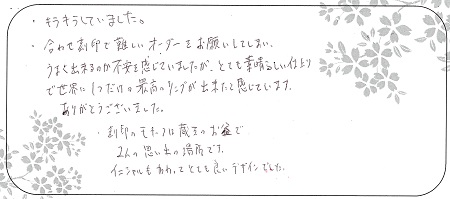 ・キラキラしていました。
・合わせ刻印で難しいオーダーをお願いしてしまい、
うまく出来るのか不安を感じていましたが、とても素晴らしい仕上り
で世界に1つだけの最高のリングが出来たと感じています。
ありがとうございました。
・刻印のモチーフは蔵王のお釜で
2人の思い出の場所です。
イニシャルもあわせてとても良いデザインでした。